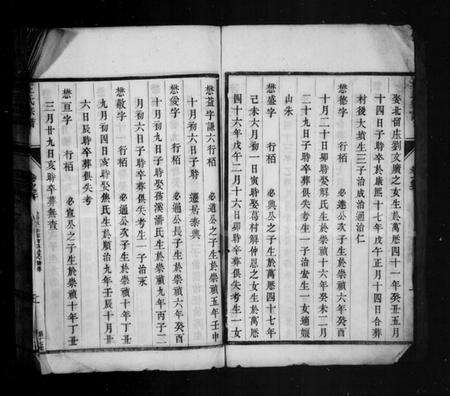 娶北留庄劉文廣之女生於萬曆四十一年癸丑五月
十四日子時卒於康熙十七年戊午正月十四日合葬
村後大墳生三子治成治通治仁
懋德字 行栢 必遠公次子生於崇禎六年癸酉
十月二十日卯時娶解氏生於崇禎十六年癸未二月
二十九日子時卒葬俱失考生一子治宏生一女適嬛
山朱
懋盛字 行栢 必興公之子生於萬曆四十七年
己未六月初一日寅時娶葛村解仲恩之女生於萬曆
四十六年戊午二月十六日卯時卒葬俱失考生一女
懋益字謙六行栢 必進公之子生於崇禎五年壬申
十月初六日子時 遷居泰興
懋愛字 行栢 必通公長子生於崇禎六年癸酉
十月初六日子時娶孩溪潘氏生於崇禎九年丙子二
月初四日子時卒葬俱失考生一子治永
懋敬字 行栢 必通公次子生於崇禎十年丁丑
九月初四日寅時娶焦氏生於順治九年壬辰十月廿
六日辰時卒葬俱失考
懋亘字 行栢 必宣公之子生於崇禎十年丁丑
三月廿九日亥時卒葬無查